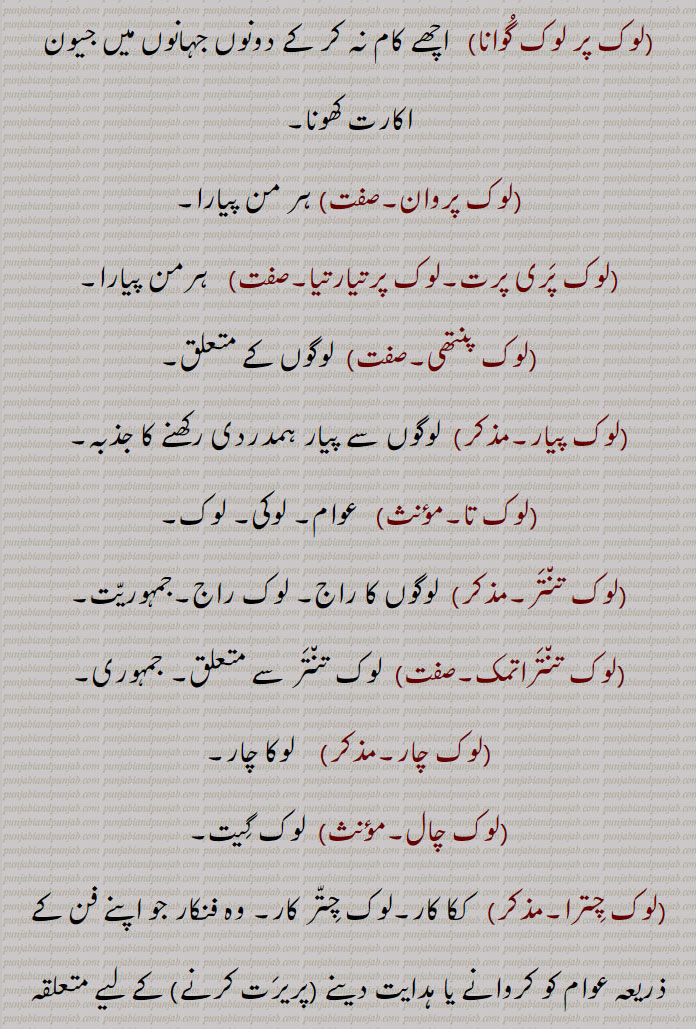 (لوک پر لوک گُوانا) اچھے کام نہ کر کے دونوں جہانوں میں جیون
اکارت کھونا۔
(لوک پروان۔صفت) ہر من پیارا۔
(لوک پَری پرت۔لوک پرتیارتیا۔صفت) ہرمن پیارا۔
(لوک پنتھی۔صفت) لوگوں کے متعلق۔
(لوک پیار۔مذکر) لوگوں سے پیار ہمدردی رکھنے کا جذبہ۔
(لوک تا۔مؤنث) عوام۔ لوکی۔ لوک۔
(لوک تنّتَر۔مذکر) لوگوں کا راج۔ لوک راج۔جمہوریّت۔
(لوک تنّتَراتمک۔صفت) لوک تنّتَر سے متعلق۔ جمہوری۔
(لوک چار۔مذکر) لوکا چار۔
(لوک چال۔مؤنث) لوک گیت۔
(لوک چِترا۔مذکر) ککا کار۔لوک چِتّر کار۔ وہ فنکار جو اپنے فن کے
ذریعہ عوام کو کروانے یا ہدایت دینے (پریرَت کرنے) کے لیے متعلقہ